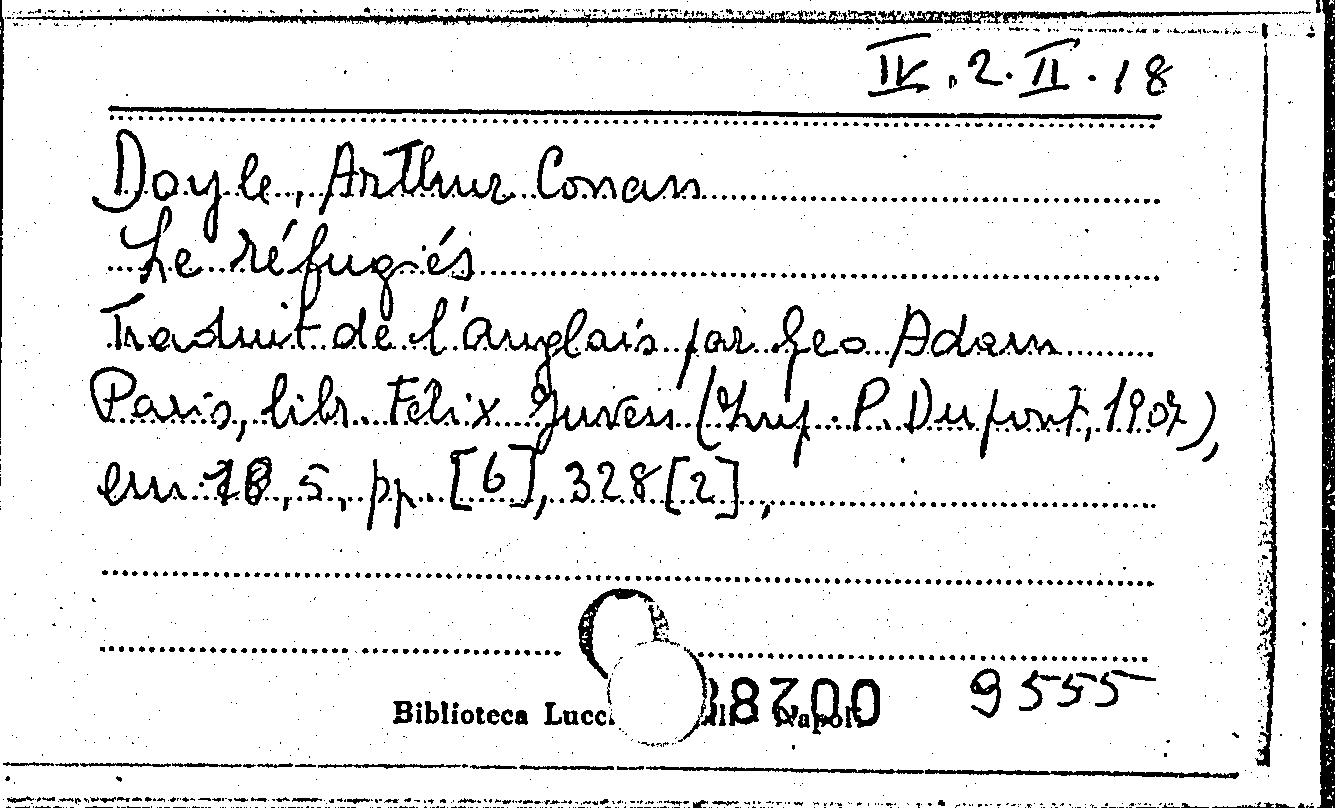 IV.2.II.18
Doyle, Arthur Conan
Le réfugiés
Traduit de l'anglais par Geo Adam
Paris, libr. Félix Juven (Imp. P. Dupont, 1907),
em 18,5, pp. [6], 328 [2],
9555
Biblioteca Napoli